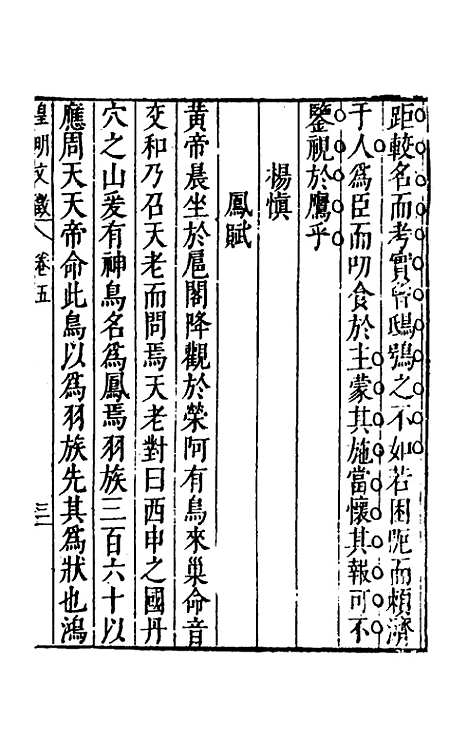 距較名而考實曾鴟鴞之不如若困阨而頼濟
于人爲臣而叨食於主蒙其施當懷其報可不
鑒視於鷹乎
楊慎
鳳賦
黃帝晨坐於扈閣降觀於榮阿有鳥來巢命音
交和乃召天老而問焉天老對曰西申之國丹
穴之山爰有神鳥名爲鳳焉羽族三百六十以
應周天天帝命此鳥以爲羽族先其爲狀也鴻
皇明文徵 卷五 三